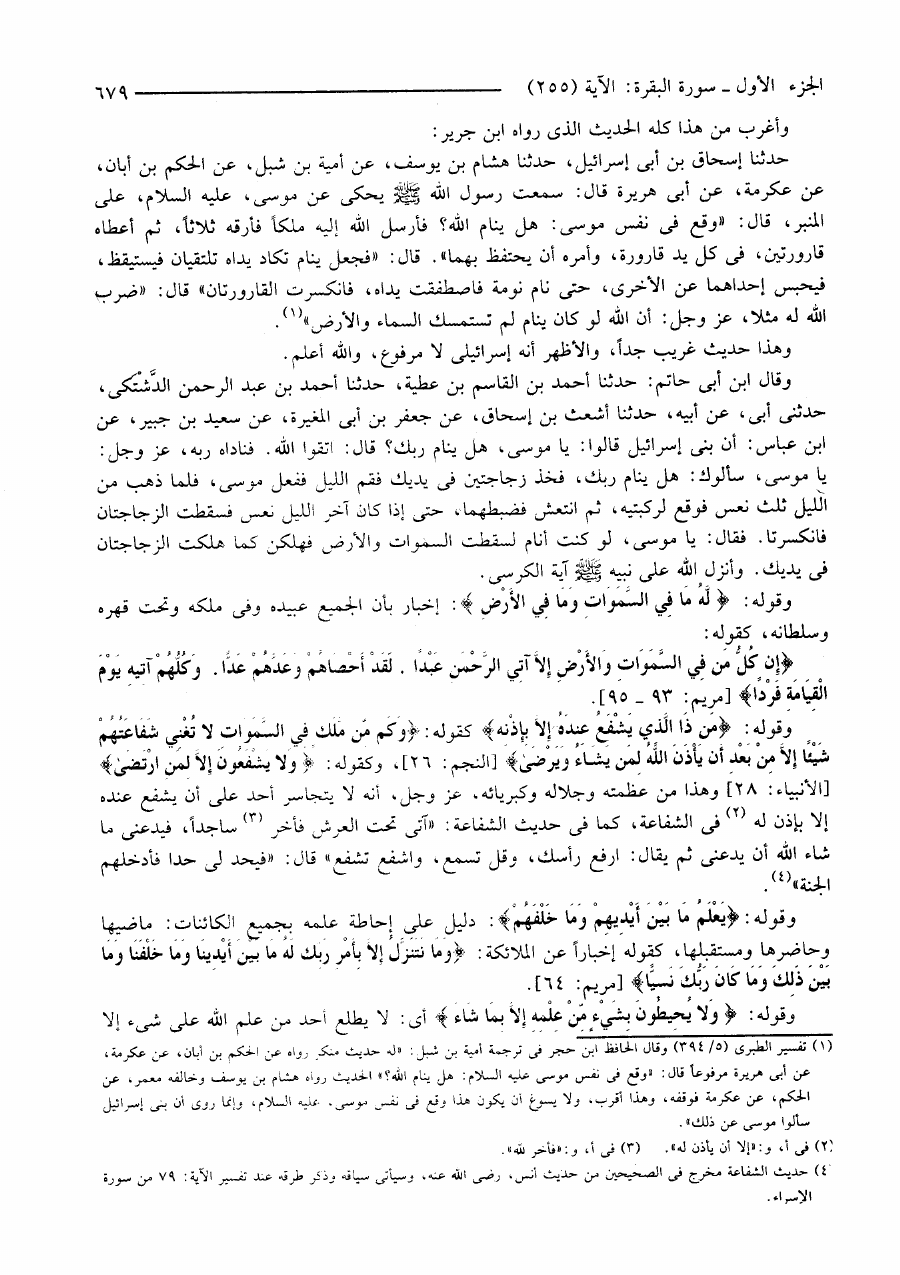 الجزء الأول ـ سورة البقرة: الآية (٢٥٥) ٦٧٩
وأغرب من هذا كله الحديث الذى رواه ابن جرير:
حدثنا إسحاق بن أبى إسرائيل، حدثنا هشام بن يوسف، عن أمية بن شبل، عن الحكم بن أبان،
عن عكرمة، عن أبى هريرة قال: سمعت رسول الله ﷺ يحكى عن موسى، عليه السلام، على
المنبر، قال: «وقع فى نفس موسى: هل ينام الله؟ فأرسل الله إليه ملكاً فأرقه ثلاثاً، ثم أعطاه
قارورتين، فى كل يد قارورة، وأمره أن يحتفظ بهما». قال: «فجعل ينام تكاد يداه تلتقيان فيستيقظ،
فيحبس إحداهما عن الأخرى، حتى نام نومة فاصطفقت يداه، فانكسرت القارورتان» قال: «ضرب
الله له مثلا، عز وجل: أن الله لو كان ينام لم تستمسك السماء والأرض»(١).
وهذا حديث غريب جداً، والأظهر أنه إسرائيلى لا مرفوع، والله أعلم.
وقال ابن أبى حاتم: حدثنا أحمد بن القاسم بن عطية، حدثنا أحمد بن عبد الرحمن الدَّشْتَكى،
حدثنى أبى، عن أبيه، حدثنا أشعث بن إسحاق، عن جعفر بن أبى المغيرة، عن سعيد بن جبير، عن
ابن عباس: أن بنى إسرائيل قالوا: يا موسى، هل ينام ربك؟ قال: اتقوا الله. فناداه ربه، عز وجل:
يا موسى، سألوك: هل ينام ربك، فخذ زجاجتين فى يديك فقم الليل ففعل موسى، فلما ذهب من
الليل ثلث نعس فوقع لركبتيه، ثم انتعش فضبطهما، حتى إذا كان آخر الليل نعس فسقطت الزجاجتان
فانكسرتا. فقال: يا موسى، لو كنت أنام لسقطت السموات والأرض فهلكن كما هلكت الزجاجتان
فى يديك. وأنزل الله على نبيه ﷺ آية الكرسى.
وقوله: ﴿ لَّهُ مَا فِي السَّمَوَاتِ وَمَا فِي الأَرْضِ ﴾: إخبار بأن الجميع عبيده وفى ملكه وتحت قهره
وسلطانه، كقوله:
﴿إِن كُلُّ مَن فِي السَّمَوَاتِ وَالأَرْضِ إِلاَّ آتِي الرَّحْمَنِ عَبْدًا . لَقَدْ أَحْصَاهُمْ وَعَدَّهُمْ عَدًّا. وَكُلُّهُمْ آتِيهِ يَوْمَ
الْقِيَامَةِ فَرْدًا﴾ [مريم: ٩٣ ـ ٩٥].
وقوله: ﴿مَن ذَا الَّذِي يَشْفَعُ عِندَهُ إِلاَّ بِإِذْنِهِ﴾ كقوله: ﴿وَكَم مِّن مَّلَكٍ فِي السَّمَوَاتِ لا تُغْنِي شَفَاعَتُهُمْ
شَيْئًا إِلاَّ مِنْ بَعْدِ أَن يَأْذَنَ اللَّهُ لِمَن يَشَاءُ وَيَرْضَىٰ﴾ [النجم: ٢٦]، وكقوله: ﴿ وَلا يَشْفَعُونَ إِلاَّ لِمَنِ ارْتَضَىٰ﴾
[الأنبياء: ٢٨] وهذا من عظمته وجلاله وكبريائه، عز وجل، أنه لا يتجاسر أحد على أن يشفع عنده
إلا بإذن له (٢) فى الشفاعة، كما فى حديث الشفاعة: «آتى تحت العرش فأخر (٣) ساجداً، فيدعنى ما
شاء الله أن يدعنى ثم يقال: ارفع رأسك، وقل تسمع، واشفع تشفع» قال: «فيحد لى حدا فأدخلهم
الجنة»(٤).
وقوله: ﴿يَعْلَمُ مَا بَيْنَ أَيْدِيهِمْ وَمَا خَلْفَهُمْ﴾: دليل على إحاطة علمه بجميع الكائنات: ماضيها
وحاضرها ومستقبلها، كقوله إخباراً عن الملائكة: ﴿وَمَا نَتَنَزَّلُ إِلاَّ بِأَمْرِ رَبِّكَ لَهُ مَا بَيْنَ أَيْدِينَا وَمَا خَلْفَنَا وَمَا
بَيْنَ ذَلِكَ وَمَا كَانَ رَبُّكَ نَسِيًّا﴾ [مريم: ٦٤].
وقوله: ﴿ وَلا يُحِيطُونَ بِشَيْءٍ مِّنْ عِلْمِهِ إِلاَّ بِمَا شَاءَ ﴾ أى: لا يطلع أحد من علم الله على شىء إلا
(١) تفسير الطبرى (٥/ ٣٩٤) وقال الحافظ ابن حجر فى ترجمة أمية بن شبل: «له حديث منكر رواه عن الحكم بن أبان، عن عكرمة،
عن أبى هريرة مرفوعاً قال: «وقع فى نفس موسى عليه السلام: هل ينام الله؟» الحديث رواه هشام بن يوسف وخالفه معمر، عن
الحكم، عن عكرمة فوقفه، وهذا أقرب، ولا يسوغ أن يكون هذا وقع فى نفس موسى، عليه السلام، وإنما روى أن بنى إسرائيل
سألوا موسى عن ذلك».
(٢) فى أ، و: «إلا أن يأذن له». (٣) فى أ، و: «فأخر لله».
(٤) حديث الشفاعة مخرج فى الصحيحين من حديث أنس، رضى الله عنه، وسيأتى سياقه وذكر طرقه عند تفسير الآية: ٧٩ من سورة
الإسراء.